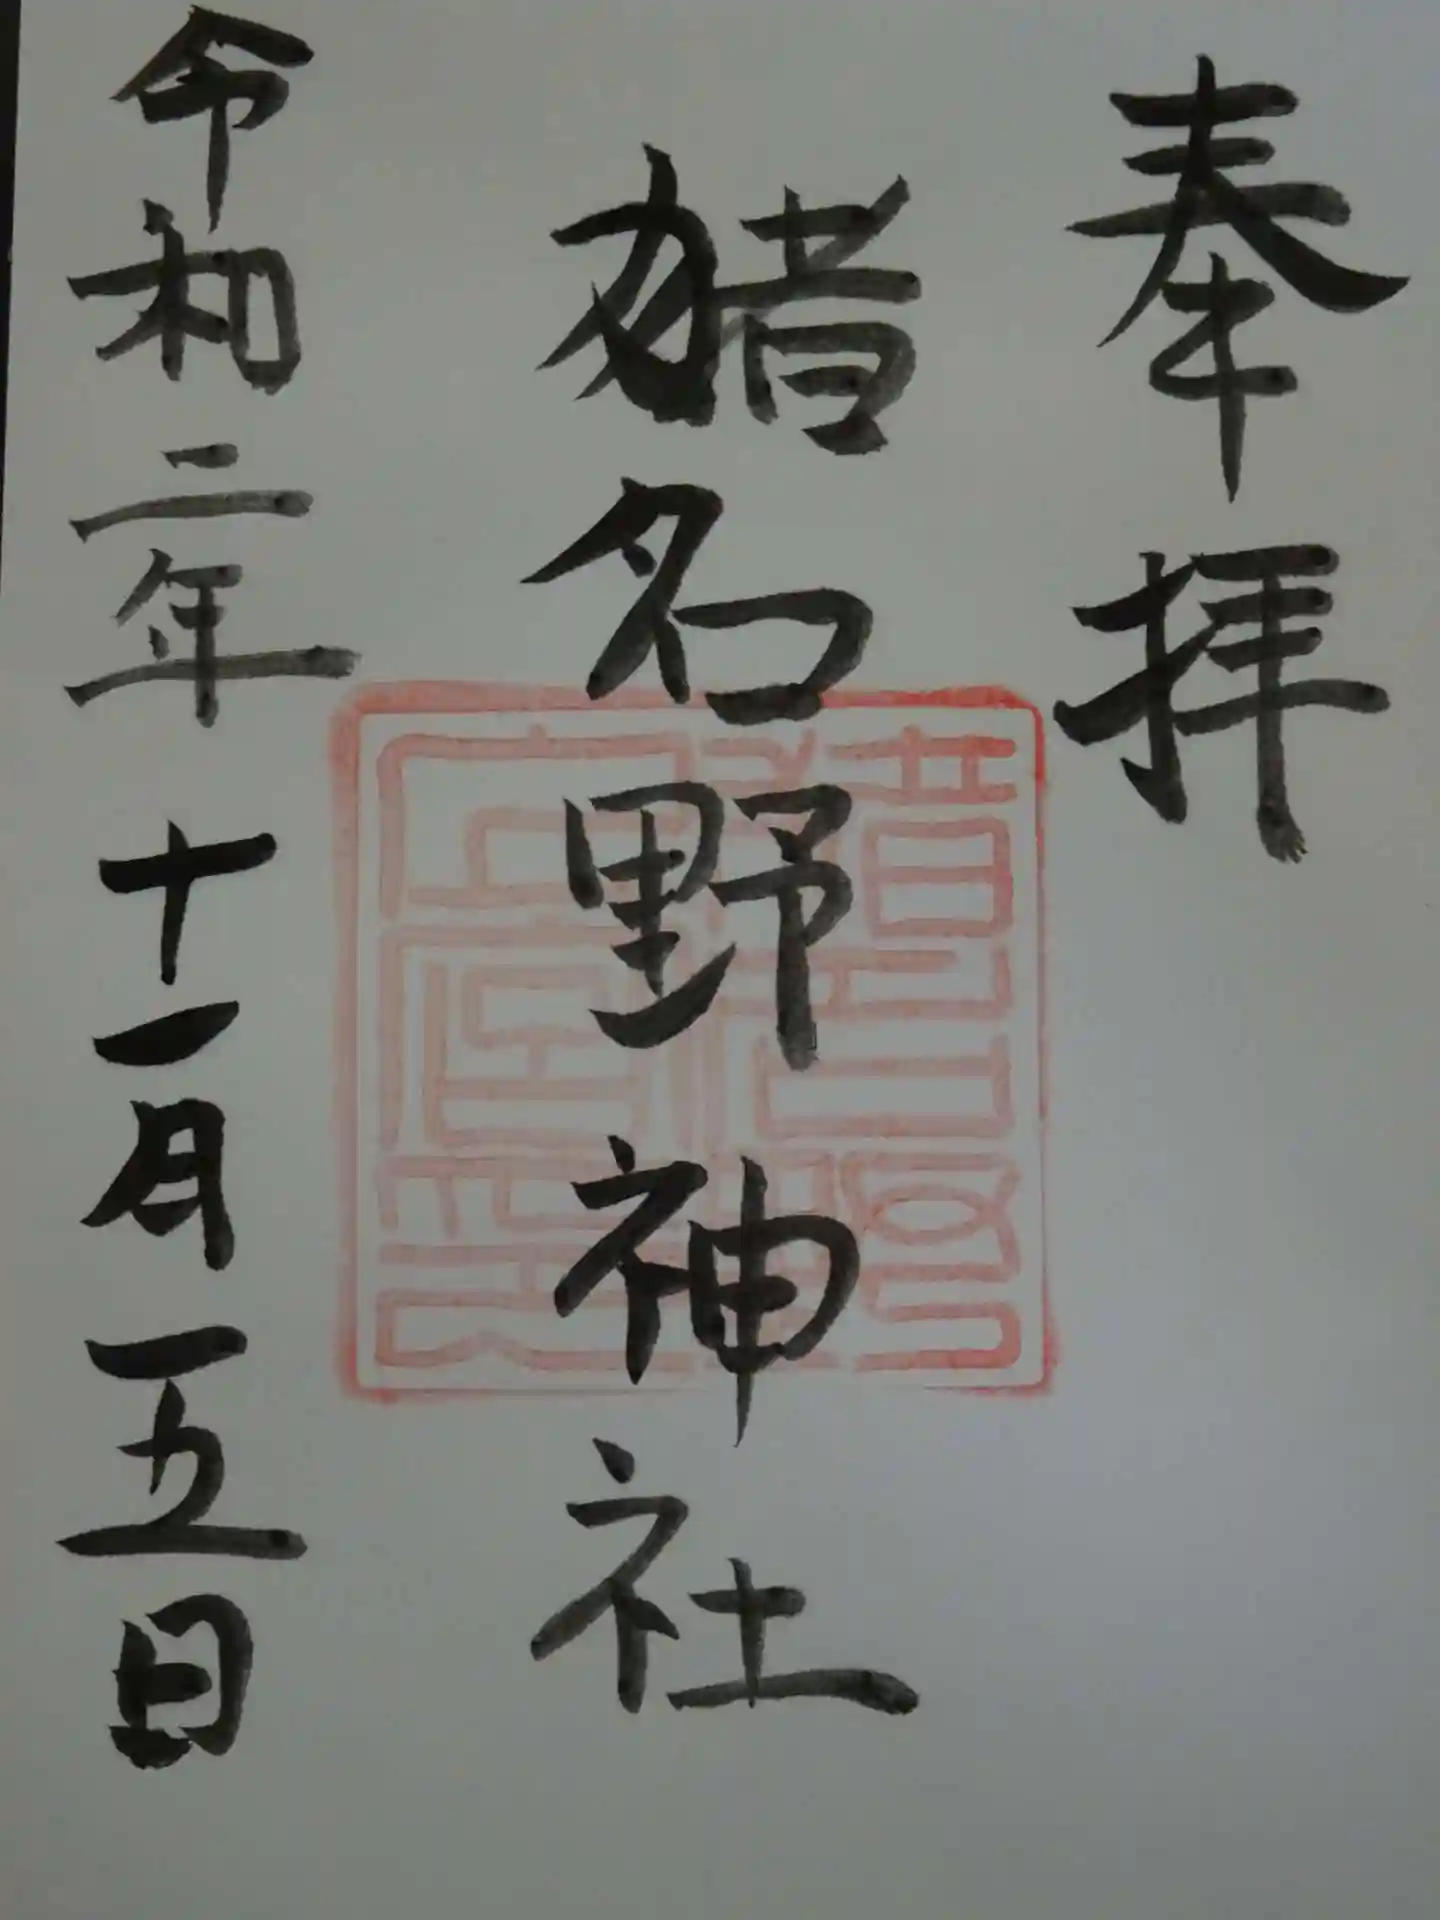 奉拝
猪名野神社
令和二年十一月一五日